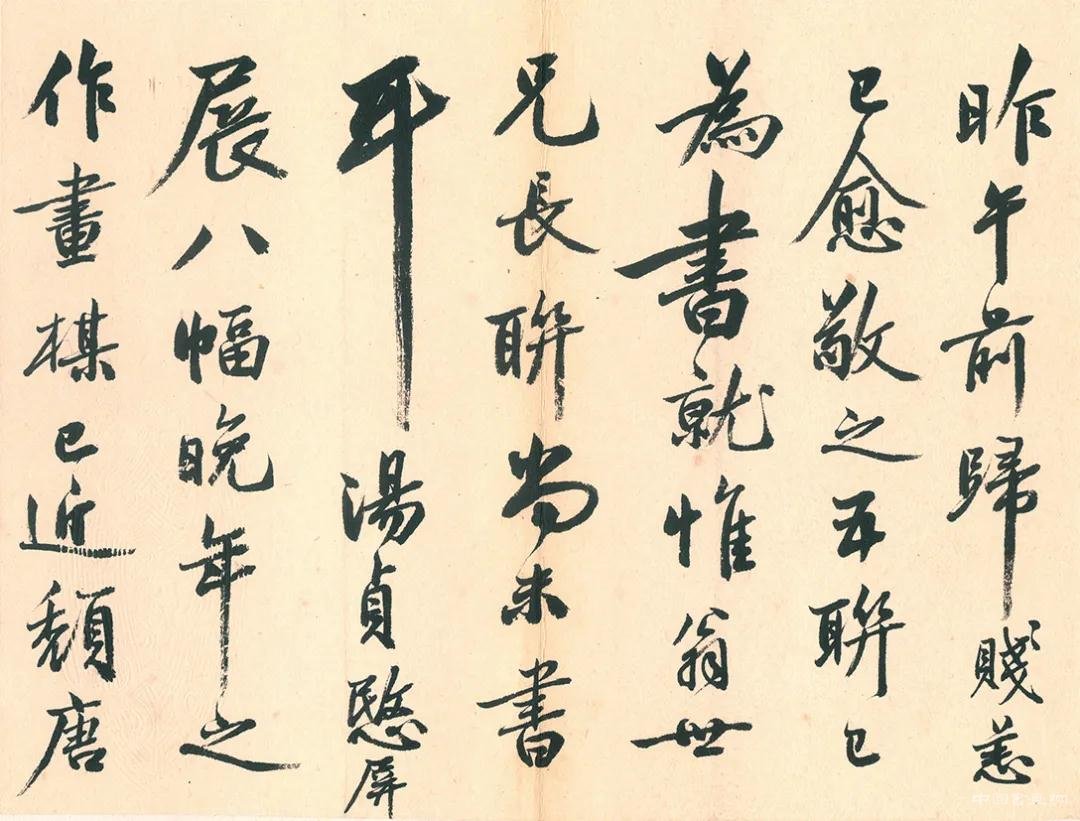 昨午前歸賤恙
已愈敬之五聯已
為書就惟翁世
兄長聯尚未書
耳湯貞愍屏
展八幅晚年之
作畫楳已近頽唐